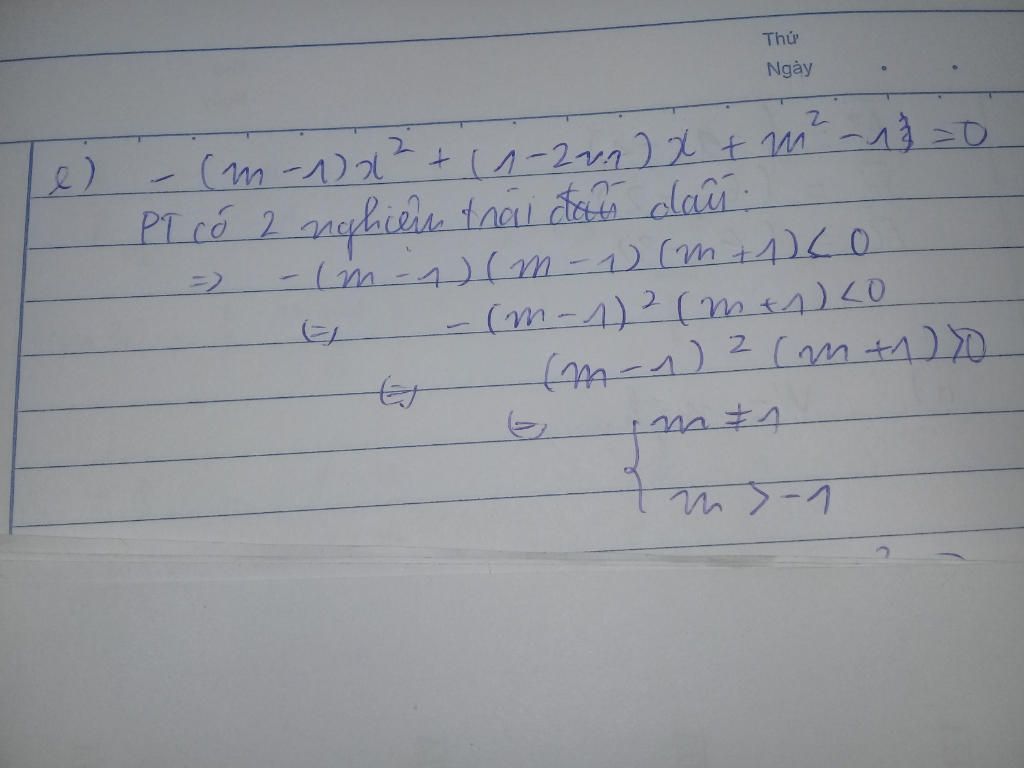 Thứ
Ngày
e) -(m-1)x² + (1-2m)x + m² - 1 = 0
PT có 2 nghiệm trái dấu.
=> -(m-1)(m-1)(m+1) < 0
(=) -(m-1)²(m+1) < 0
(=) (m-1)²(m+1) > 0
(=) { m ≠ 1
m > -1